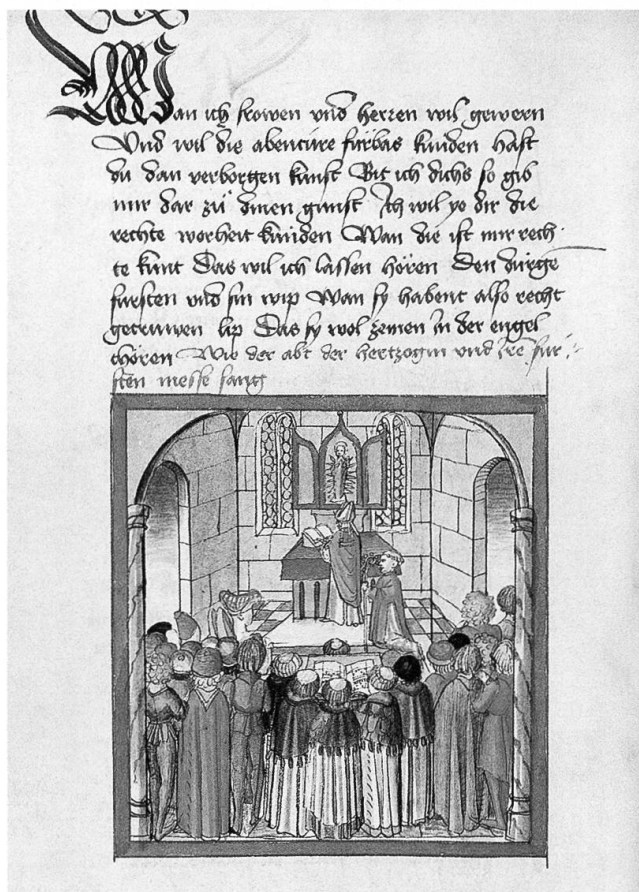 Wan ich frowen und herren wil gewern
Und wil die abentüre fürbas künden Hast
du dan verborgen kunst Bit ich dichs so gib
mir dar zů dinen gunst Ich wil yo dir die
rechte worheit künden Wan die ist mir rech
te kunt Das wil ich lassen hören Den dürge
fursten und sin wip Wan sy habent also recht
getruwen lip Das sy wol zemen In der engel
chören Wie der abt der hertzogin und Iren fur
sten messe sang